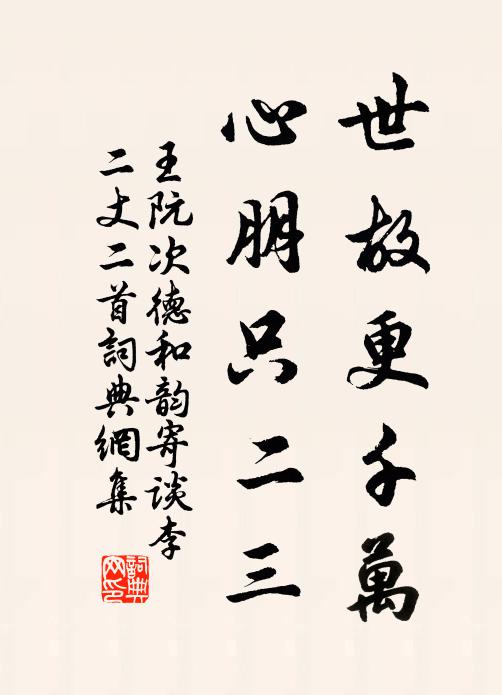 世故更千萬
心朋只二三
王阮次德和韵寄谈李
二丈二首詞典網集
詞典
网印